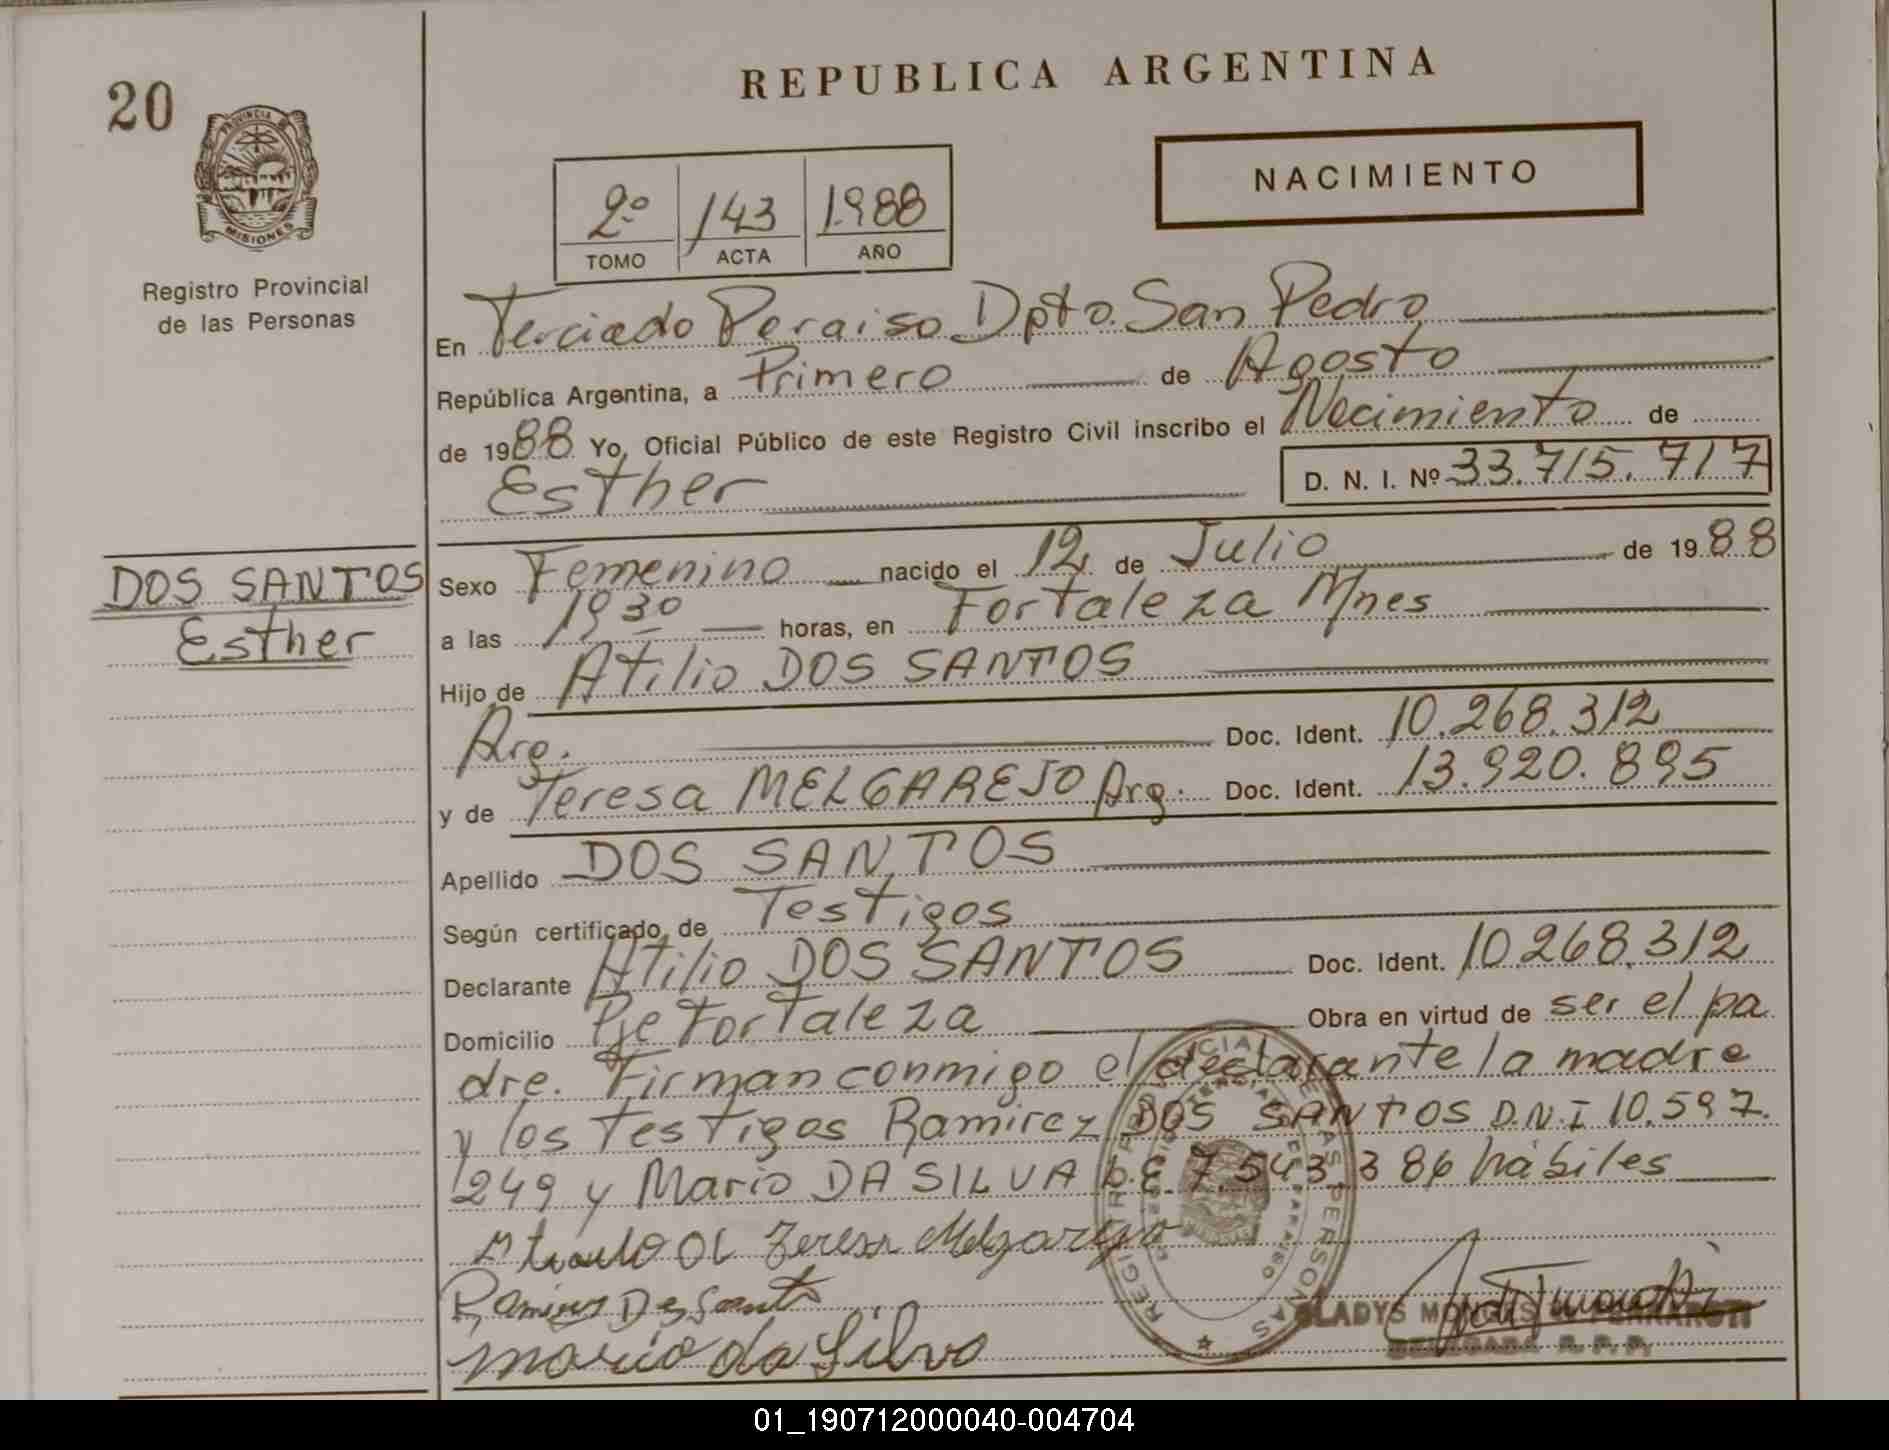 20
REPUBLICA ARGENTINA
PROVINCIA DE
MISIONES
Registro Provincial
de las Personas
2º 143 1988
TOMO ACTA AÑO
NACIMIENTO
En Terciado Paraiso Dpto. San Pedro
República Argentina, a Primero de Agosto
de 1988 Yo, Oficial Público de este Registro Civil inscribo el Nacimiento de
Esther D. N. I. Nº 33.715.717
DOS SANTOS
Esther
Sexo Femenino nacido el 12 de Julio de 1988
a las 19 30 horas, en Fortaleza Mnes
Hijo de Atilio DOS SANTOS
Arg. Doc. Ident. 10.268.312
y de Teresa MELGAREJO Arg. Doc. Ident. 13.920.895
Apellido DOS SANTOS
Según certificado de Testigos
Declarante Atilio DOS SANTOS Doc. Ident. 10.268.312
Domicilio Pje Fortaleza Obra en virtud de ser el pa
dre. Firman conmigo el declarante la madre
y los testigos Ramirez DOS SANTOS D.N.I 10.597.
249 y Mario DA SILVA L.E. 7.543.386 hábiles
Teresa Melgarejo
mario da Silva
GLADYS
R.P.P.
01_190712000040-004704